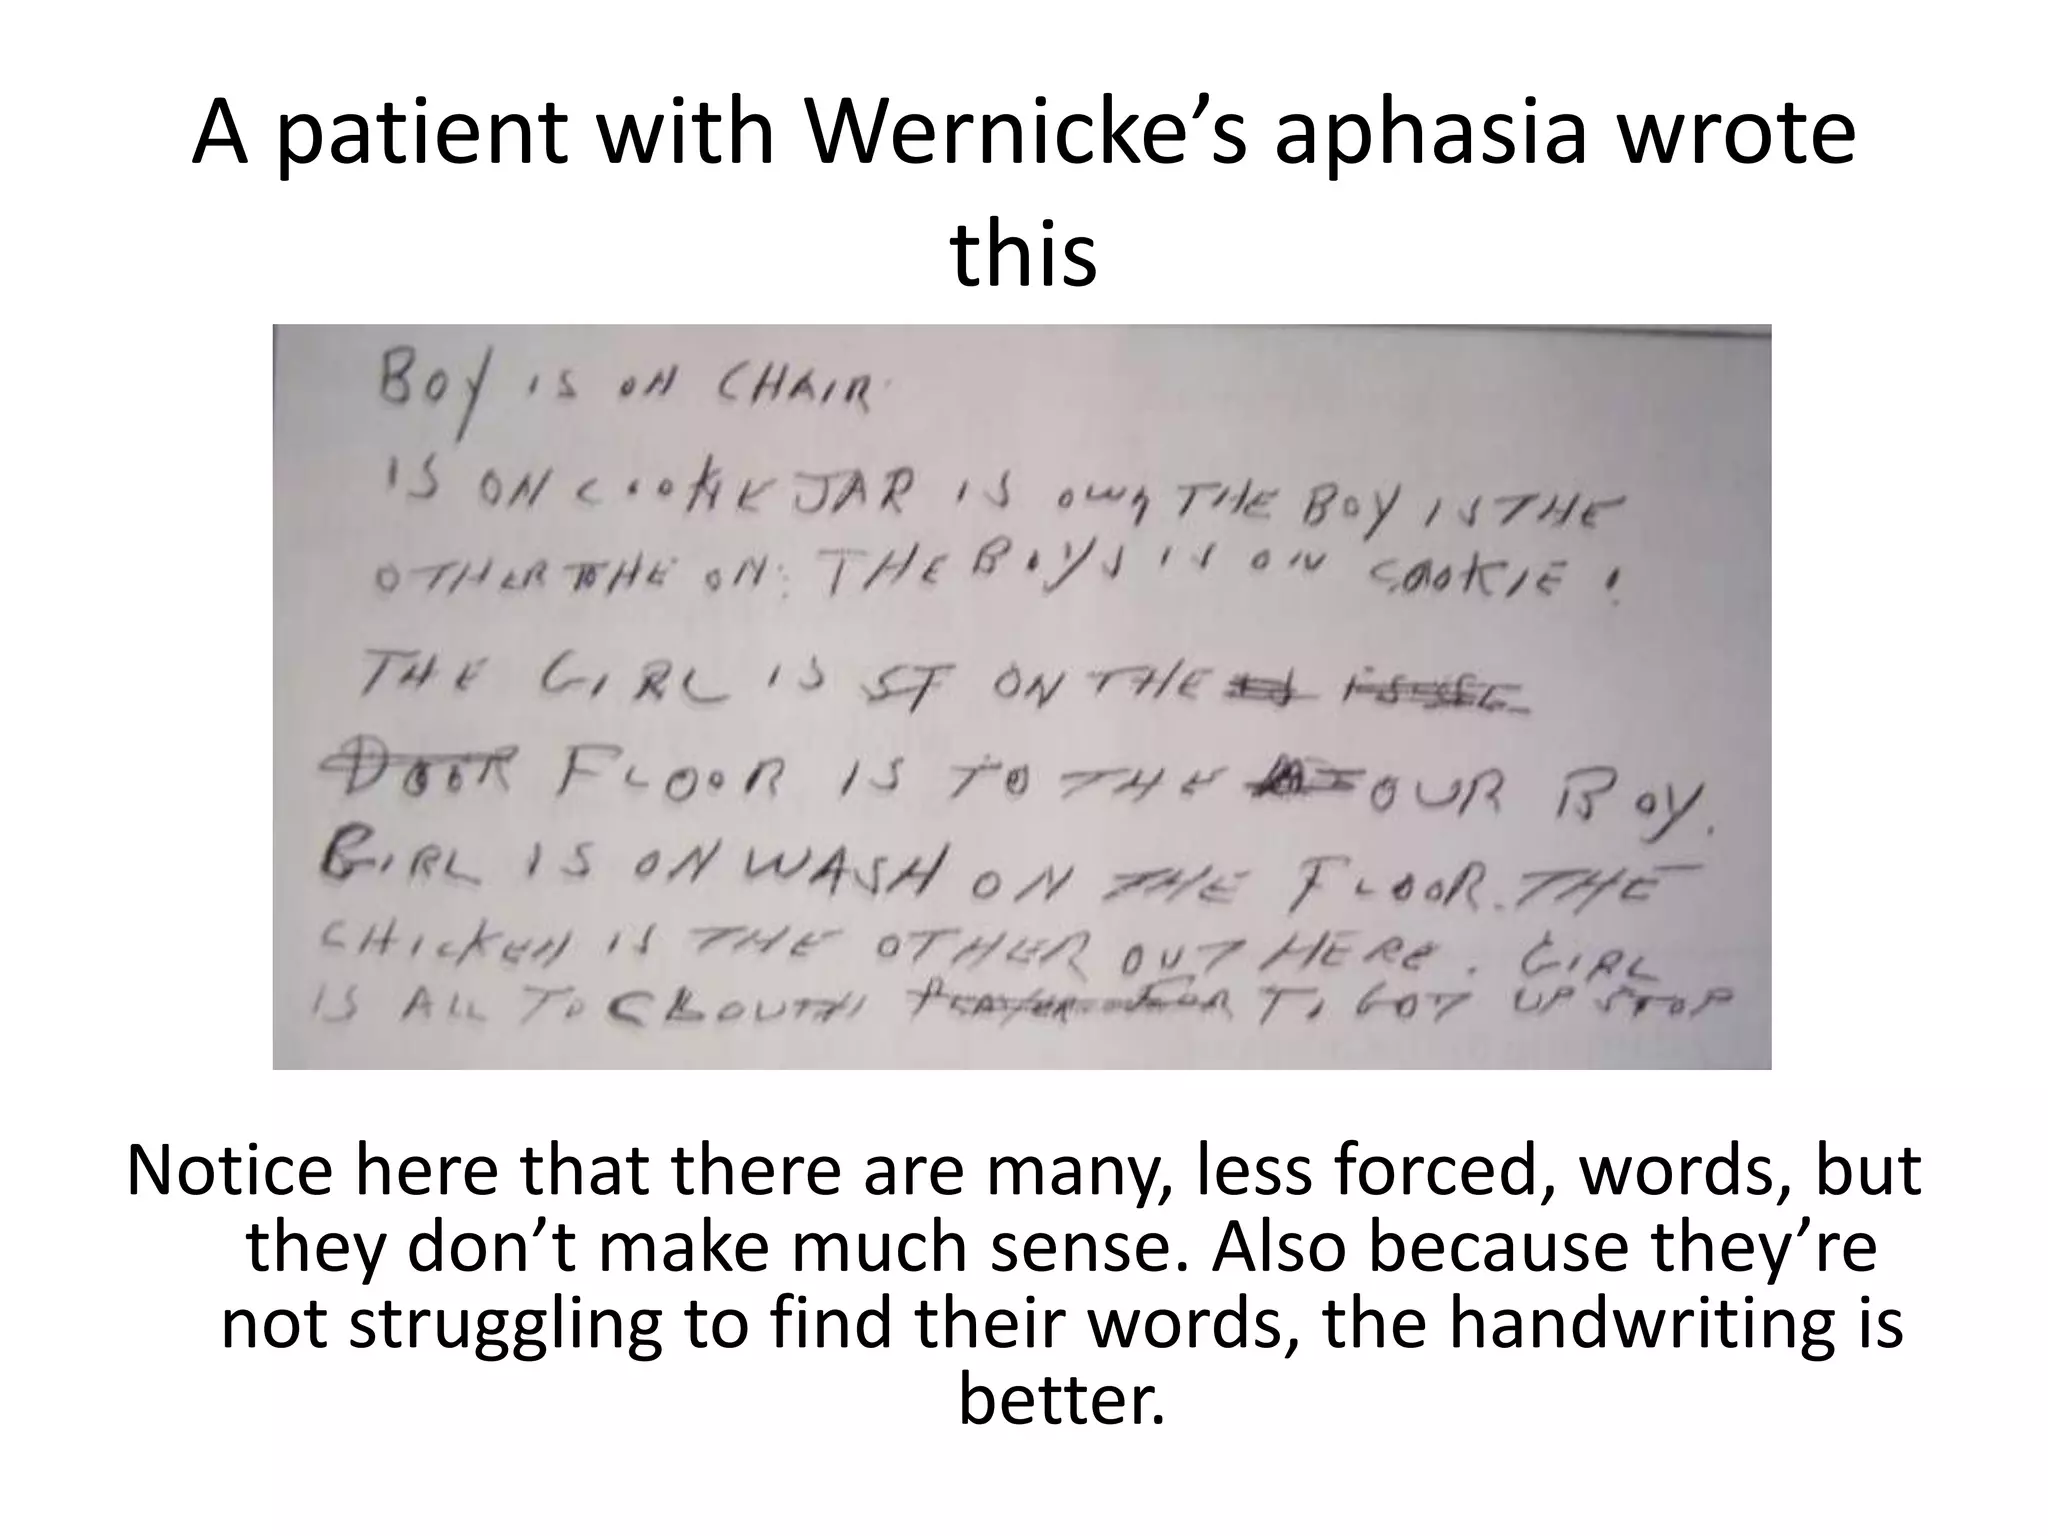 A patient with Wernicke’s aphasia wrote
this
BOY IS ON CHAIR.
IS ON COOKE JAR IS own THE BOY IS THE
OTHER THE ON. THE BOYS IS ON COOKIE!
THE GIRL IS ST ON THE
DOOR FLOOR IS TO THE OUR BOY.
GIRL IS ON WASH ON THE FLOOR. THE
CHICKEN IS THE OTHER OUT HERE. GIRL
IS ALL TO FOR GOT UP STOP
Notice here that there are many, less forced, words, but
they don’t make much sense. Also because they’re
not struggling to find their words, the handwriting is
better.